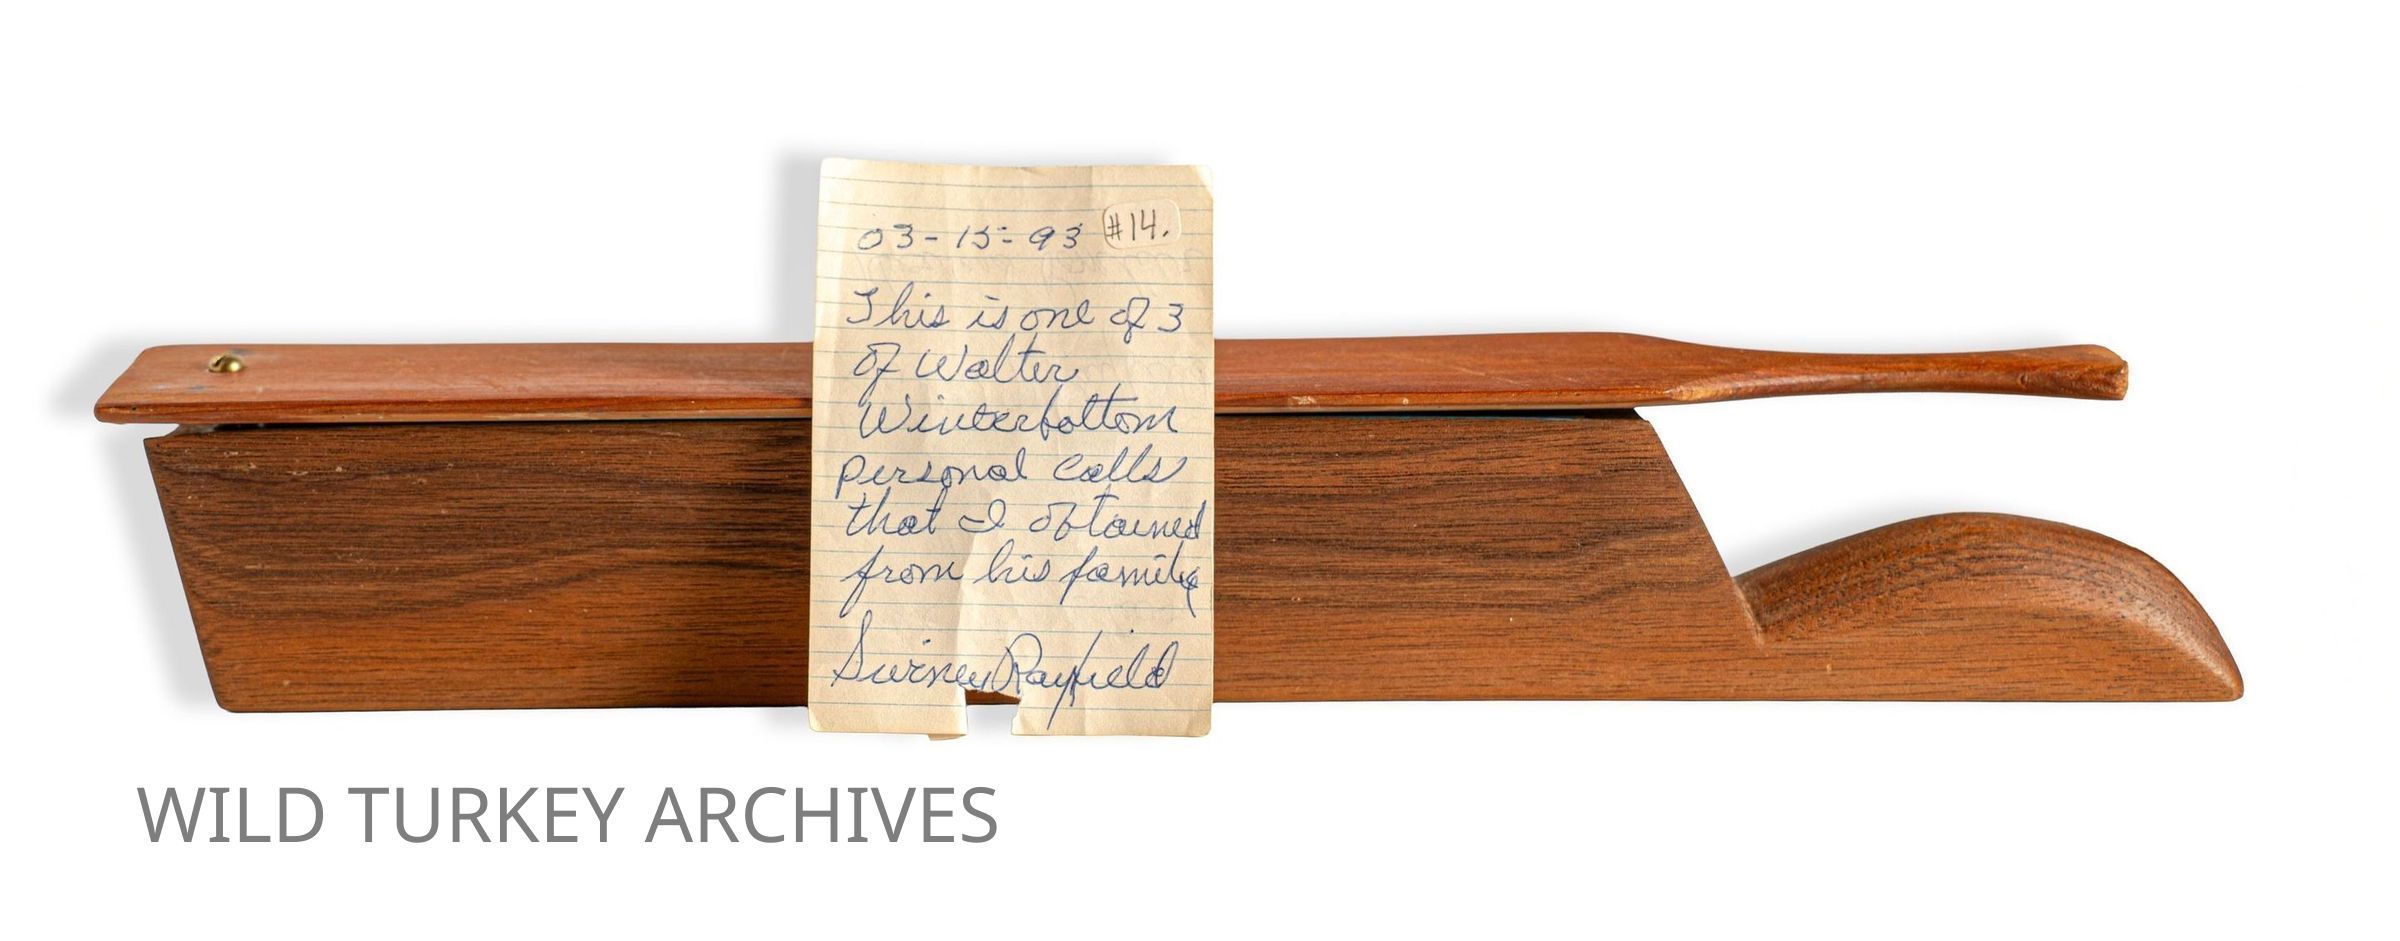 03-15-93 #14.
This is one of 3
of Walter
Winterbottom
personal calls
that I obtained
from his family
Swiney Rayfield
WILD TURKEY ARCHIVES